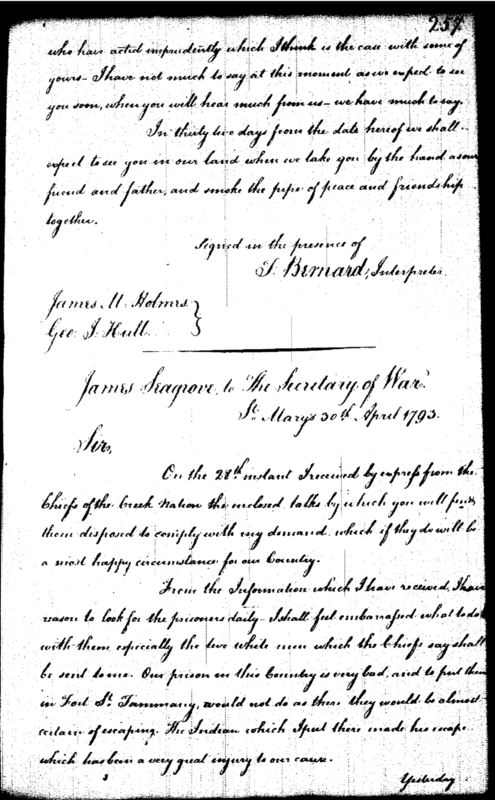 257.
who have acted imprudently which I think is the case with some of
yours - I have not much to say at this moment as we expect to see
you soon, when you will hear much from us - we have much to say.
In thirty two days from the date hereof we shall
expect to see you in our land when we take you by the hand as our
friend and father, and smoke the pipe of peace and friendship
together.
Signed in the presence of
T. Bernard, Interpreter.
James M. Holmes }
Geo. J. Hull }
James Seagrove, to The Secretary of War.
St. Mary's 30th April 1793.
Sir,
On the 28th instant I received by express from the
Chiefs of the Creek Nation the enclosed talks by which you will find
them disposed to comply with my demand which if they do will be
a most happy circumstance for our Country.
From the Information which I have received, I have
reason to look for the prisoners daily - I shall feel embarrassed what to do
with them, especially the two white men which the Chiefs say shall
be sent to me. Our prison in this Country is very bad, and to put them
in Fort St. Tammany, would not do as there they would be almost
certain of escaping. The Indian which I put there made his escape
which has been a very great injury to our cause.
Yesterday